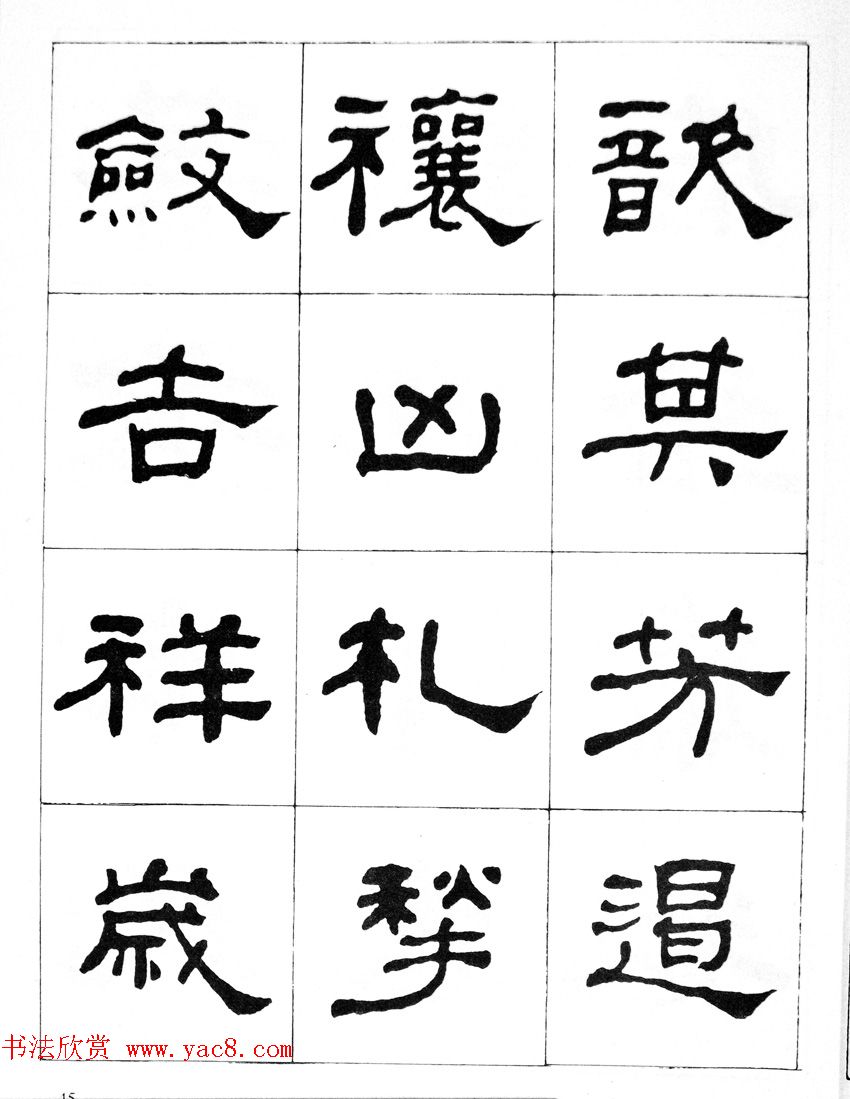 歆其芳遏
禳凶札揫
斂吉祥歲
书法欣赏 www.yac8.com
15